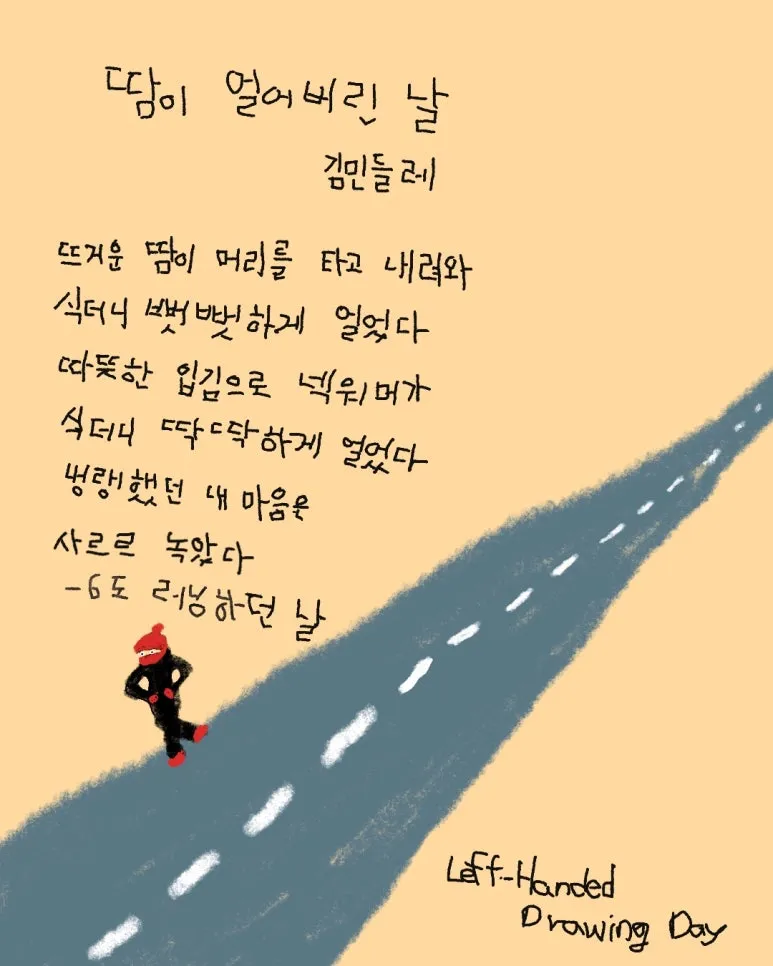 땀이 얼어버린 날
김민들레
뜨거운 땀이 머리를 타고 내려와
식더니 뻣뻣하게 얼었다
따뜻한 입김으로 넥워머가
식더니 딱딱하게 얼었다
냉랭했던 내 마음은
사르르 녹았다
-6도 러닝하던 날
Left-Handed
Drawing Day